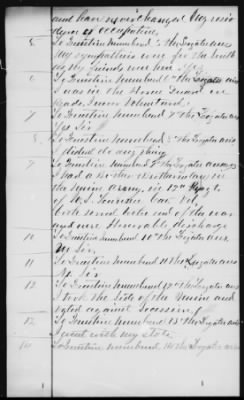 and have never changed my resi
dence or occupation
5 To Question numbered 5 the Legatee ans
My sympathies were for the South
as my friends were here
6 To Question numbered 6 the Legatee ans
I was in the Home Guard
never Volunteered
7 To Question numbered 7 the Legatee ans
Yes Sir
8 To Question numbered 8 the Legatee ans
I did not do any thing
9 To Question numbered 9 the Legatee answers
I had a Brother
in the Union Army, in 12th Regt
of U.S. Tennessee Cav Vol,
both served until end of the war
and were Honorable discharge
10 To Question numbered 10th the Legatee ans
No Sir
11 To Question numbered 11 the Legatee ans
No Sir
12 To Question numbered 12th the Legatee ans
I took the side of the Union and
voted against Secession
13 To Question numbered 13th the Legatee ans
I went with my state
14 To Question numbered 14 the Legatee ans